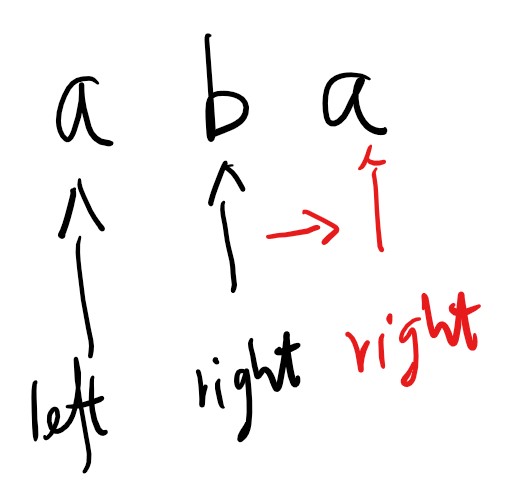 a b a
left right right